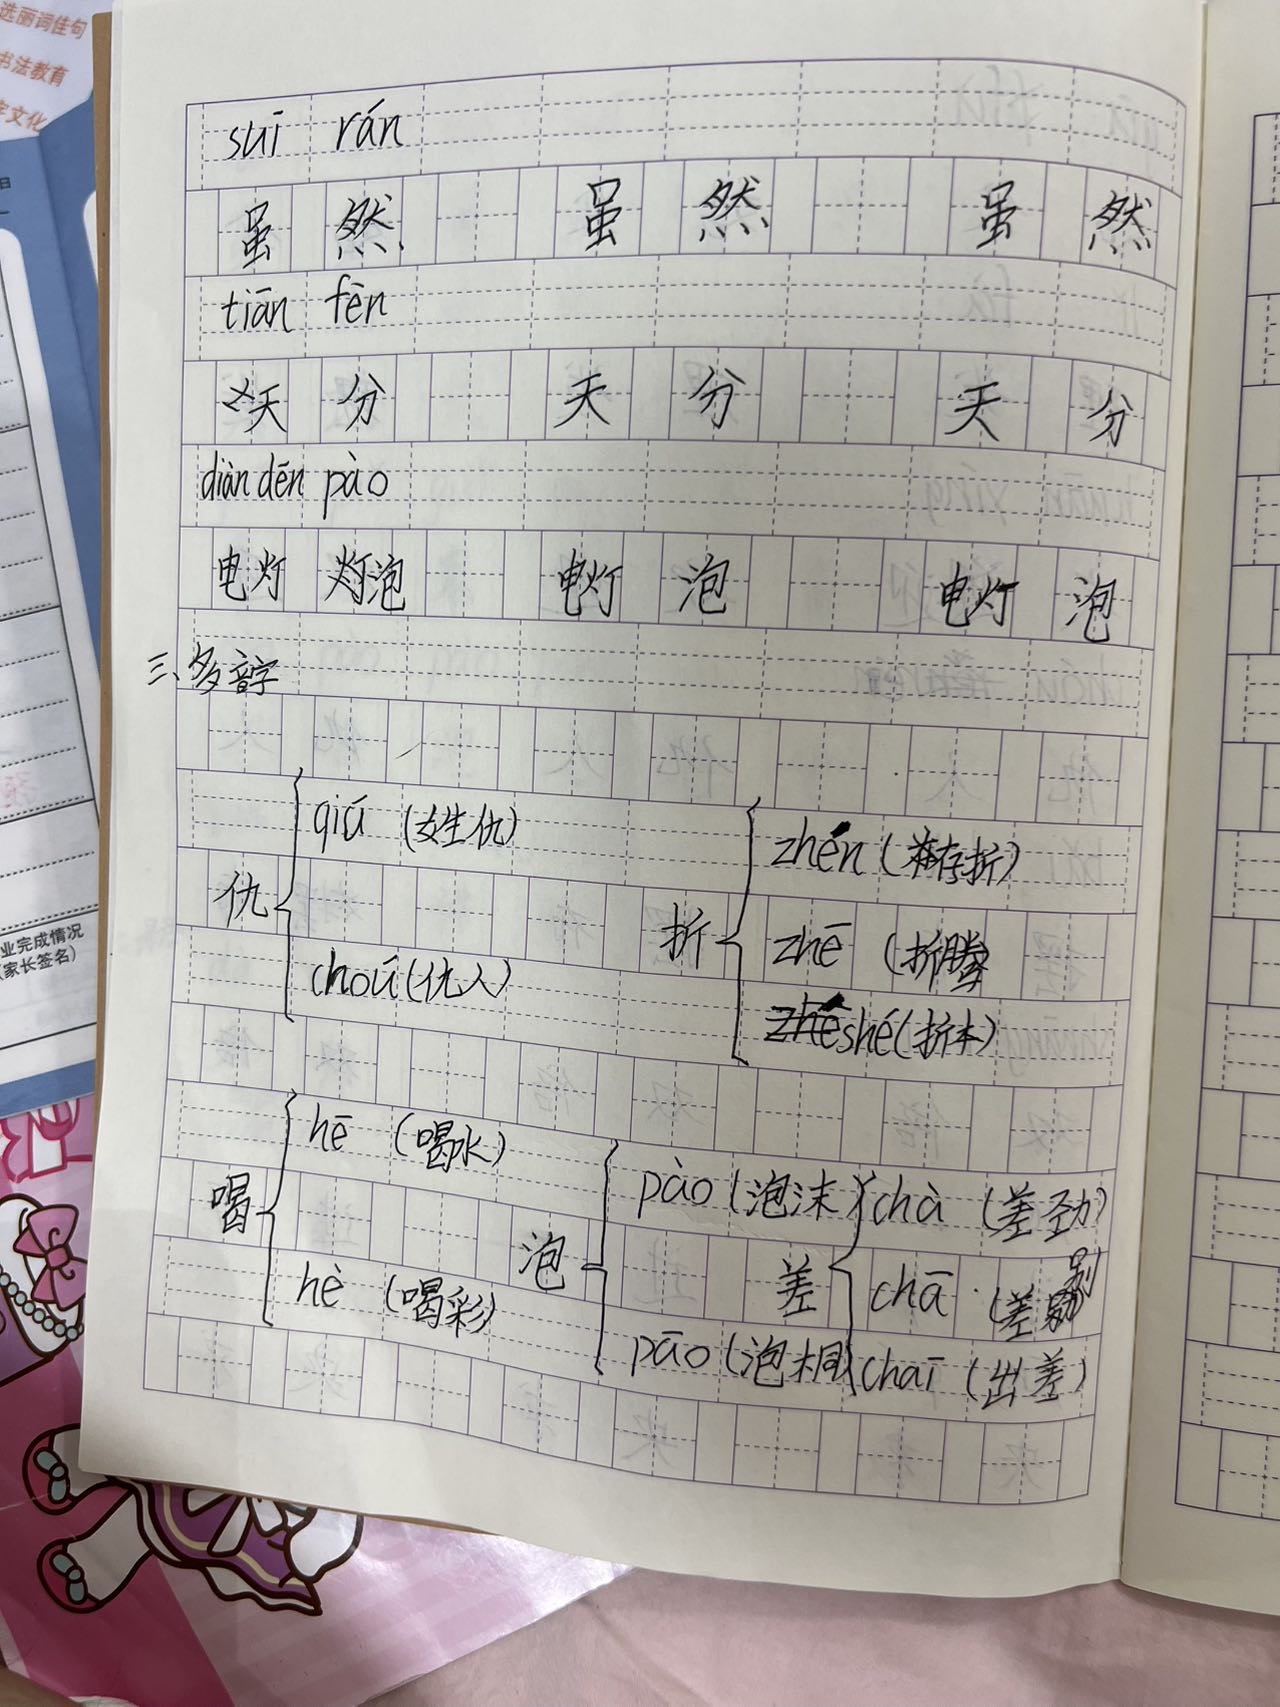 选丽词佳句
书法教育
文化
日
业完成情况
(家长签名)
suī rán
虽然 虽然 虽然
tiān fēn
天分 天分 天分
diàn dēn pào
电灯 灯泡 电灯泡 电灯泡
三、多音字
仇 qiú (姓仇)
choú (仇人)
折 zhén (存折)
zhē (折腾)
shé (折本)
喝 hē (喝水)
hè (喝彩)
泡 pào (泡沫)
pāo (泡桐)
差 chà (差劲)
chā (差别)
chaī (出差)